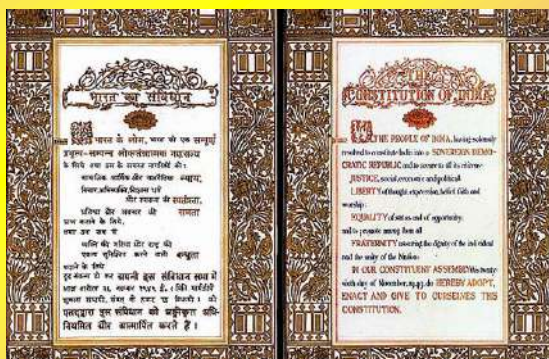 भारत का संविधान
भारत के लोग, भारत को एक सम्पूर्ण
प्रभुत्व-सम्पन्न लोकतंत्रात्मक गणराज्य
के लिये तथा उस के समस्त नागरिकों को:
सामाजिक आर्थिक और राजनैतिक न्याय,
विचार, अभिव्यक्ति, विश्वास, धर्म
और उपासना की स्वतंत्रता,
प्रतिष्ठा और अवसर की समता
प्राप्त कराने के लिये,
तथा उन सब में
व्यक्ति की गरिमा और राष्ट्र की
एकता सुनिश्चित करने वाली बन्धुता
बढ़ाने के लिये
दृढ़ संकल्प हो कर अपनी इस संविधान सभा में
आज तारीख २६ नवम्बर १९४९ ई.
को
एतद्द्वारा इस संविधान को अङ्गीकृत, अधि-
नियमित और आत्मार्पित करते हैं।
THE
CONSTITUTION OF INDIA
THE PEOPLE OF INDIA, having solemnly
resolved to constitute India into a SOVEREIGN DEMO-
CRATIC REPUBLIC and to secure to all its citizens:
JUSTICE, social, economic and political;
LIBERTY of thought, expression, belief, faith and
worship;
EQUALITY of status and of opportunity;
and to promote among them all
FRATERNITY assuring the dignity of the individual
and the unity of the Nation;
IN OUR CONSTITUENT ASSEMBLY this twenty-
sixth day of November, 1949, do HEREBY ADOPT,
ENACT AND GIVE TO OURSELVES THIS
CONSTITUTION.